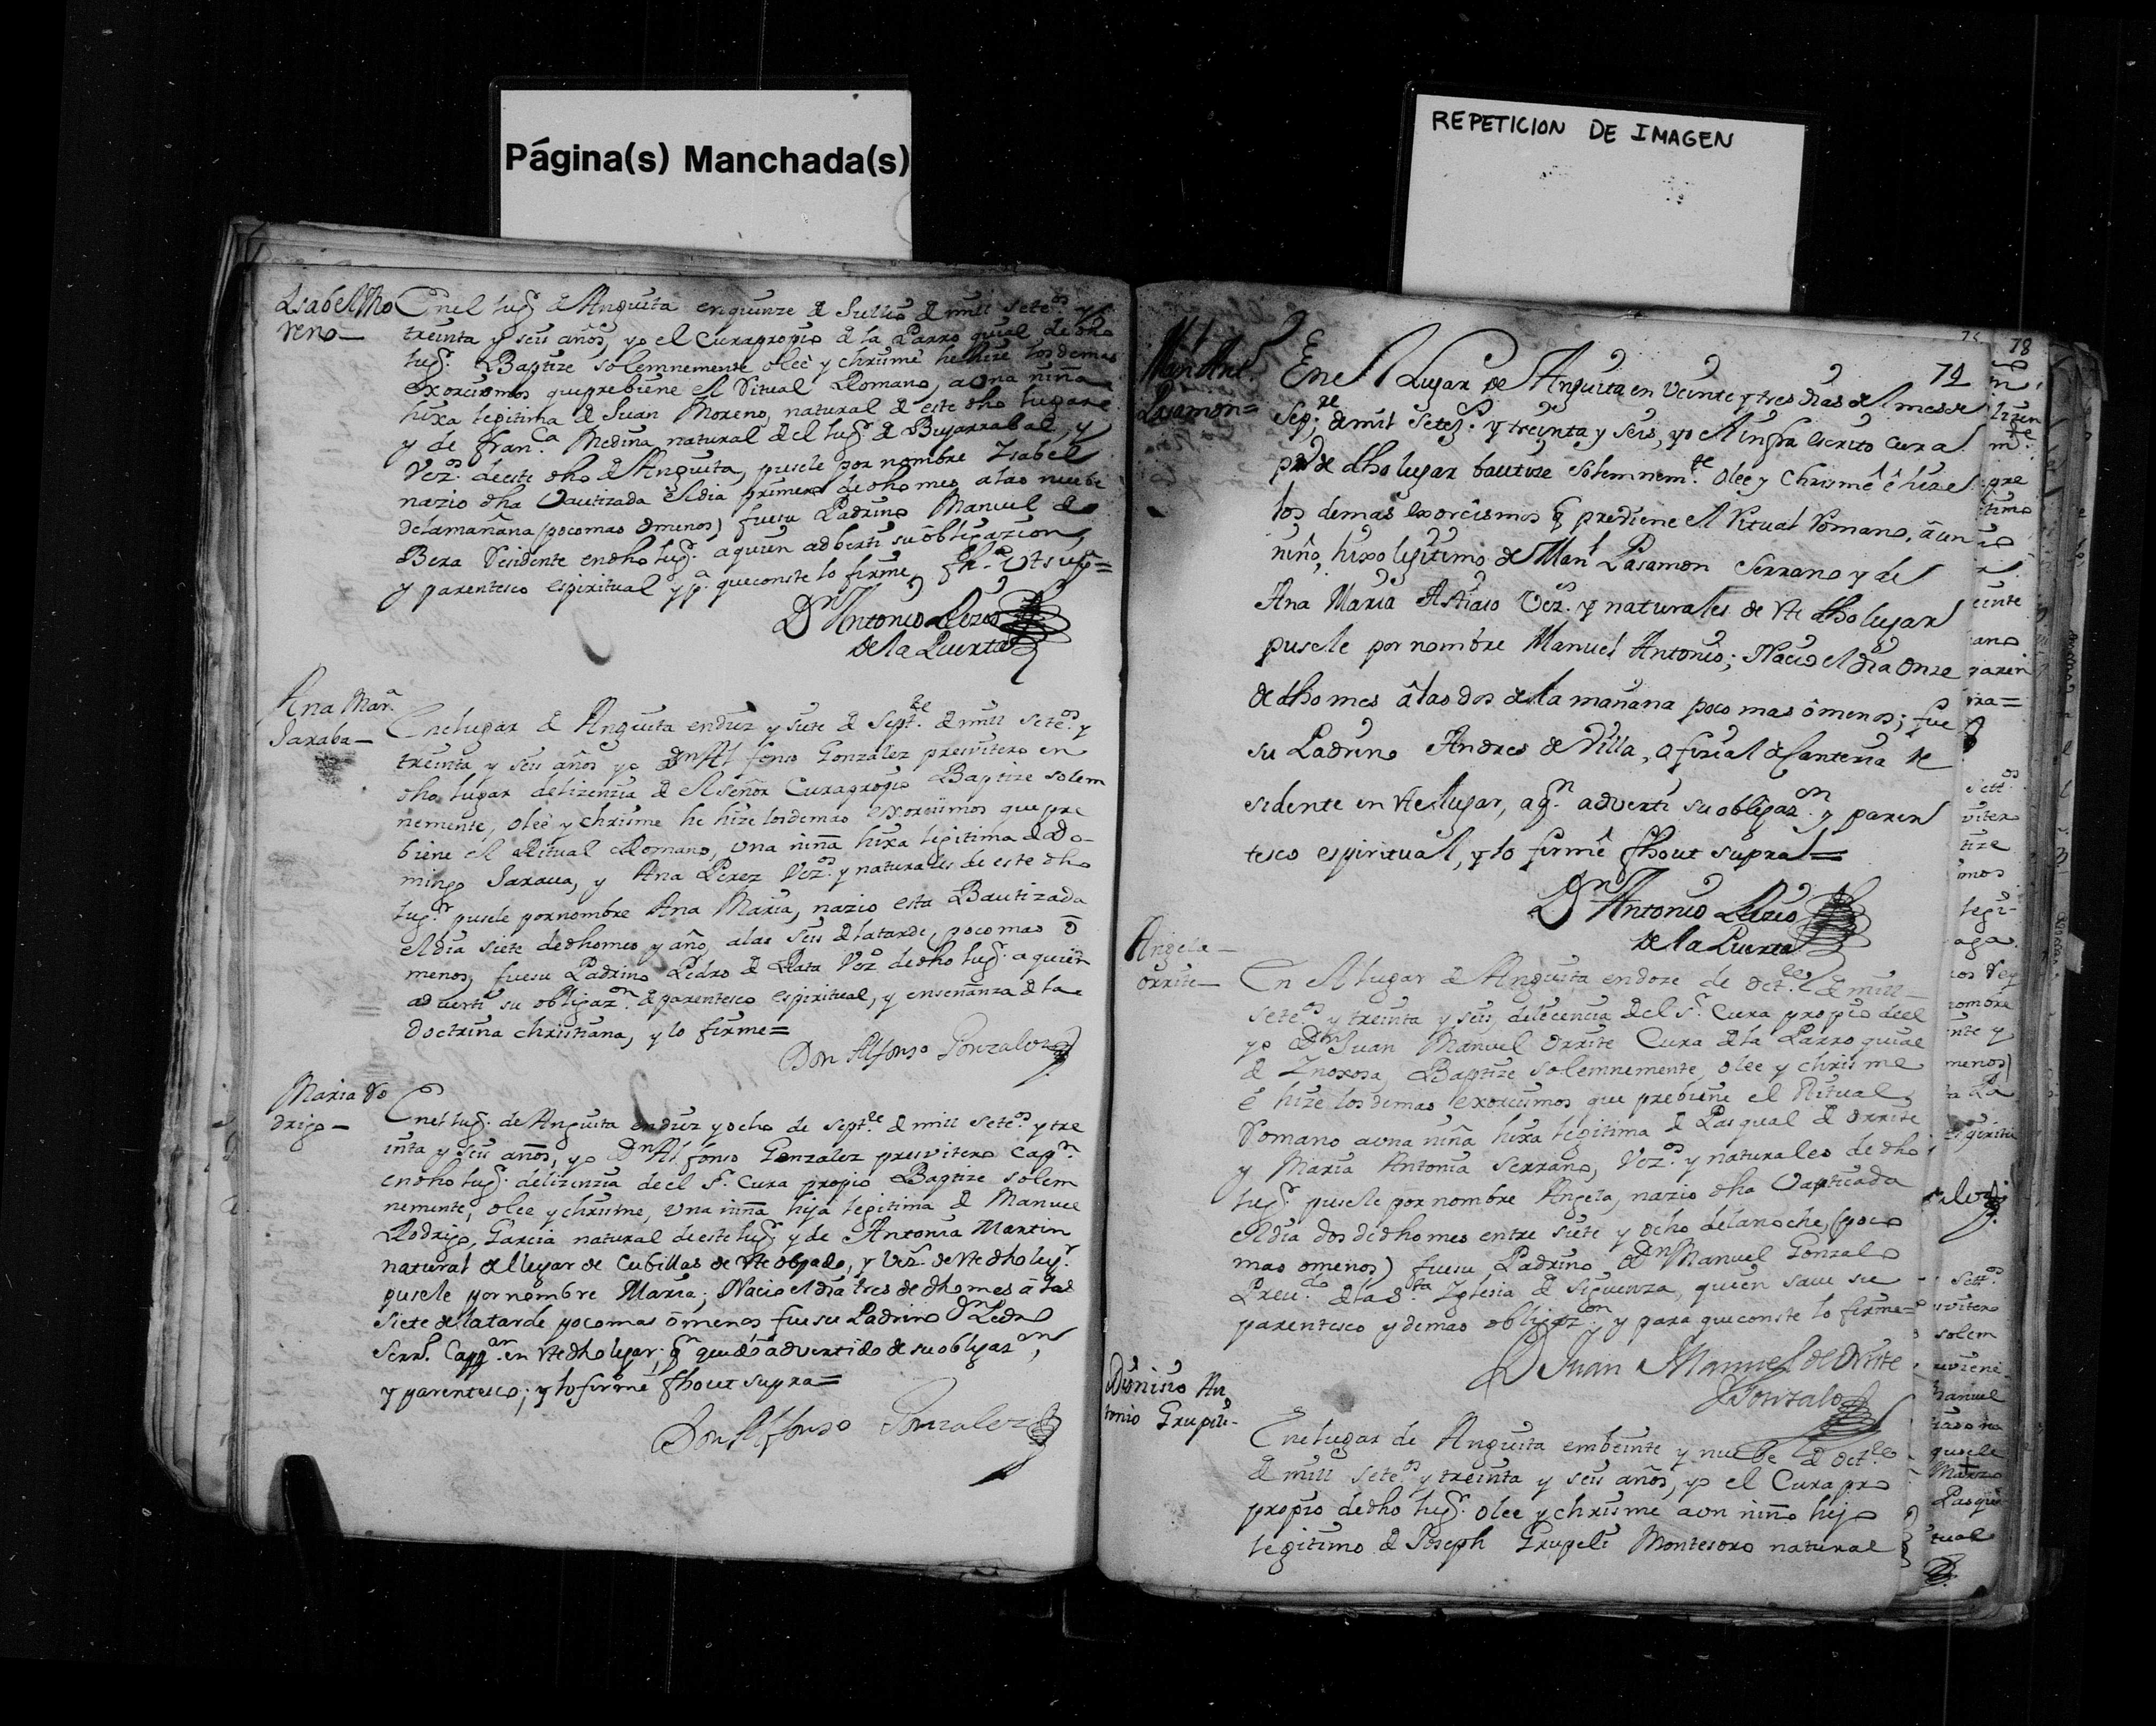 Página(s) Manchada(s)
REPETICION DE IMAGEN
Isabel Mo
reno
Enel lugr. de Anguita en quinze de Jullio de mill setezos. y
treinta y seis años, yo el Cura propio de la Parroquial de dho
lugr. Baptize solemnemente olee y chrisme he hize los demas
exorcismos que prebiene el Ritual Romano, a una niña
hixa legitima de Juan Moreno, natural de este dho lugar
y de Franca. Medina natural del lugr. de Bujarrabal, y
Vezos. de este dho de Anguita, pusele por nombre Isabel
nazio dha Vautizada el dia primero de dho mes a las nuebe
de la mañana (poco mas o menos) fue su Padrino Manuel de
Bera Residente en dho lugr. a quien adberti su obligazion,
y parentesco espiritual y pa. que conste lo firme, fha. Ut supra=
Dn Antonio Lizos
de la Puerta
Ana Mara.
Jaraba
Enelugar de Anguita en diez y siete de Septre. de mill setezos. y
treinta y seis años yo Dn Alfonso Gonzalez presvitero en
dho lugar de lizenzia de el señor Cura propio Baptize solem
nemente, olee y chrisme he hize los demas exorcismos que pre
biene el Ritual Romano, una niña hixa legitima de Do-
mingo Jaraua, y Ana Perez Vezos. y naturales de este dho
lugr. pusele por nombre Ana Maria, nazio esta Bautizada
el dia siete de dho mes y año, a las seis de la tarde, poco mas o
menos, fue su Padrino Pedro de Plata Vezo. de dho lugr. a quien
adverti su obligazon. de parentesco espiritual, y enseñanza de la
Doctrina christiana, y lo firme=
Don Alfonso Gonzalez
Maria Ro
drigo
Enel lugr. de Anguita en diez y ocho de septre. de mill setezos. y tre
inta y seis años, yo Dn Alfonso Gonzalez presvitero Capn.
en dho lugr. de lizenzia de el Sr. Cura propio Baptize solem
nemente, olee y chrisme, una niña hija legitima de Manuel
Rodrigo, Garcia natural de este lugr. y de Antonia Martin
natural del lugar de Cubillas de Vte obpado, y Vezs. de Vte dho lugr.
pusele por nombre Maria; Nacio el dia tres de dho mes â las
siete de la tarde poco mas ô menos fue su Padrino Dn Pedro
Serro. Cappan. en Vte dho lugar; qn quedo advertido de su obligazon,
y parentesco; y lo firme fho ut supra=
Don Alfonso Gonzalez
74
78
Manl Anto.
Lasamon=
En el Lugar de Anguita en veinte y tres dias del mes de
Sepre; de mil setezs. y treinta y seis, yo el infra escrito Cura
pro de dho lugar bautize solemnemte. olee y chrismê ê hize
los demas exorcismos q prediene el Ritual Romano, â un
niño, hixo legitimo de Manl Lasamon Serrano y de
Ana Maria Astiaso Vezos. y naturales de Vte dho lugar
pusele por nombre Manuel Antonio; Nacio el dia onze
de dho mes â las dos de la mañana poco mas ô menos; fue
su Padrino Andres de Villa, ofizial de Canteria Re
sidente en Vte lugar, a qn. adverti su obligazon. y paren
tesco espiritual, y lo firmê fho ut supra=
Dn Antonio Lizos
de la Puerta
Angela
orrite
En el lugar de Anguita en doze de octre. de mill
setezos y treinta y seis, de licencia del Sr. Cura propio de el
yo Dn Juan Manuel Orrite Cura de la Parroquial
de Ynoxosa, Baptize solemnemente, olee y chrisme
ê hize los demas exorcismos que prebiene el Ritual
Romano a una niña hixa legitima de Pasqual de Orrite
y Maria Antonia Serrano, Vezos. y naturales de dho
lugr. pusele por nombre Angela, nazio dha Vapticada
el dia dos de dho mes entre siete y ocho de la noche, (poco
mas o menos) fue su Padrino Dn Manuel Gonzalo
Prevdo. de la Sta Iglesia de Siguenza, quien save su
parentesco y demas obligazon, y para que conste lo firme=
D Juan Manuel de Orrite
Gonzalo
Dionisio An
tonio Grupeli-
Enelugar de Anguita embeinte y nuebe de octre.
de mill setezos. y treinta y seis años, yo el Cura pro
propio de dho lugr. olee y chrisme a un niño hijo
legitimo de Joseph Grupeli Montesoro natural